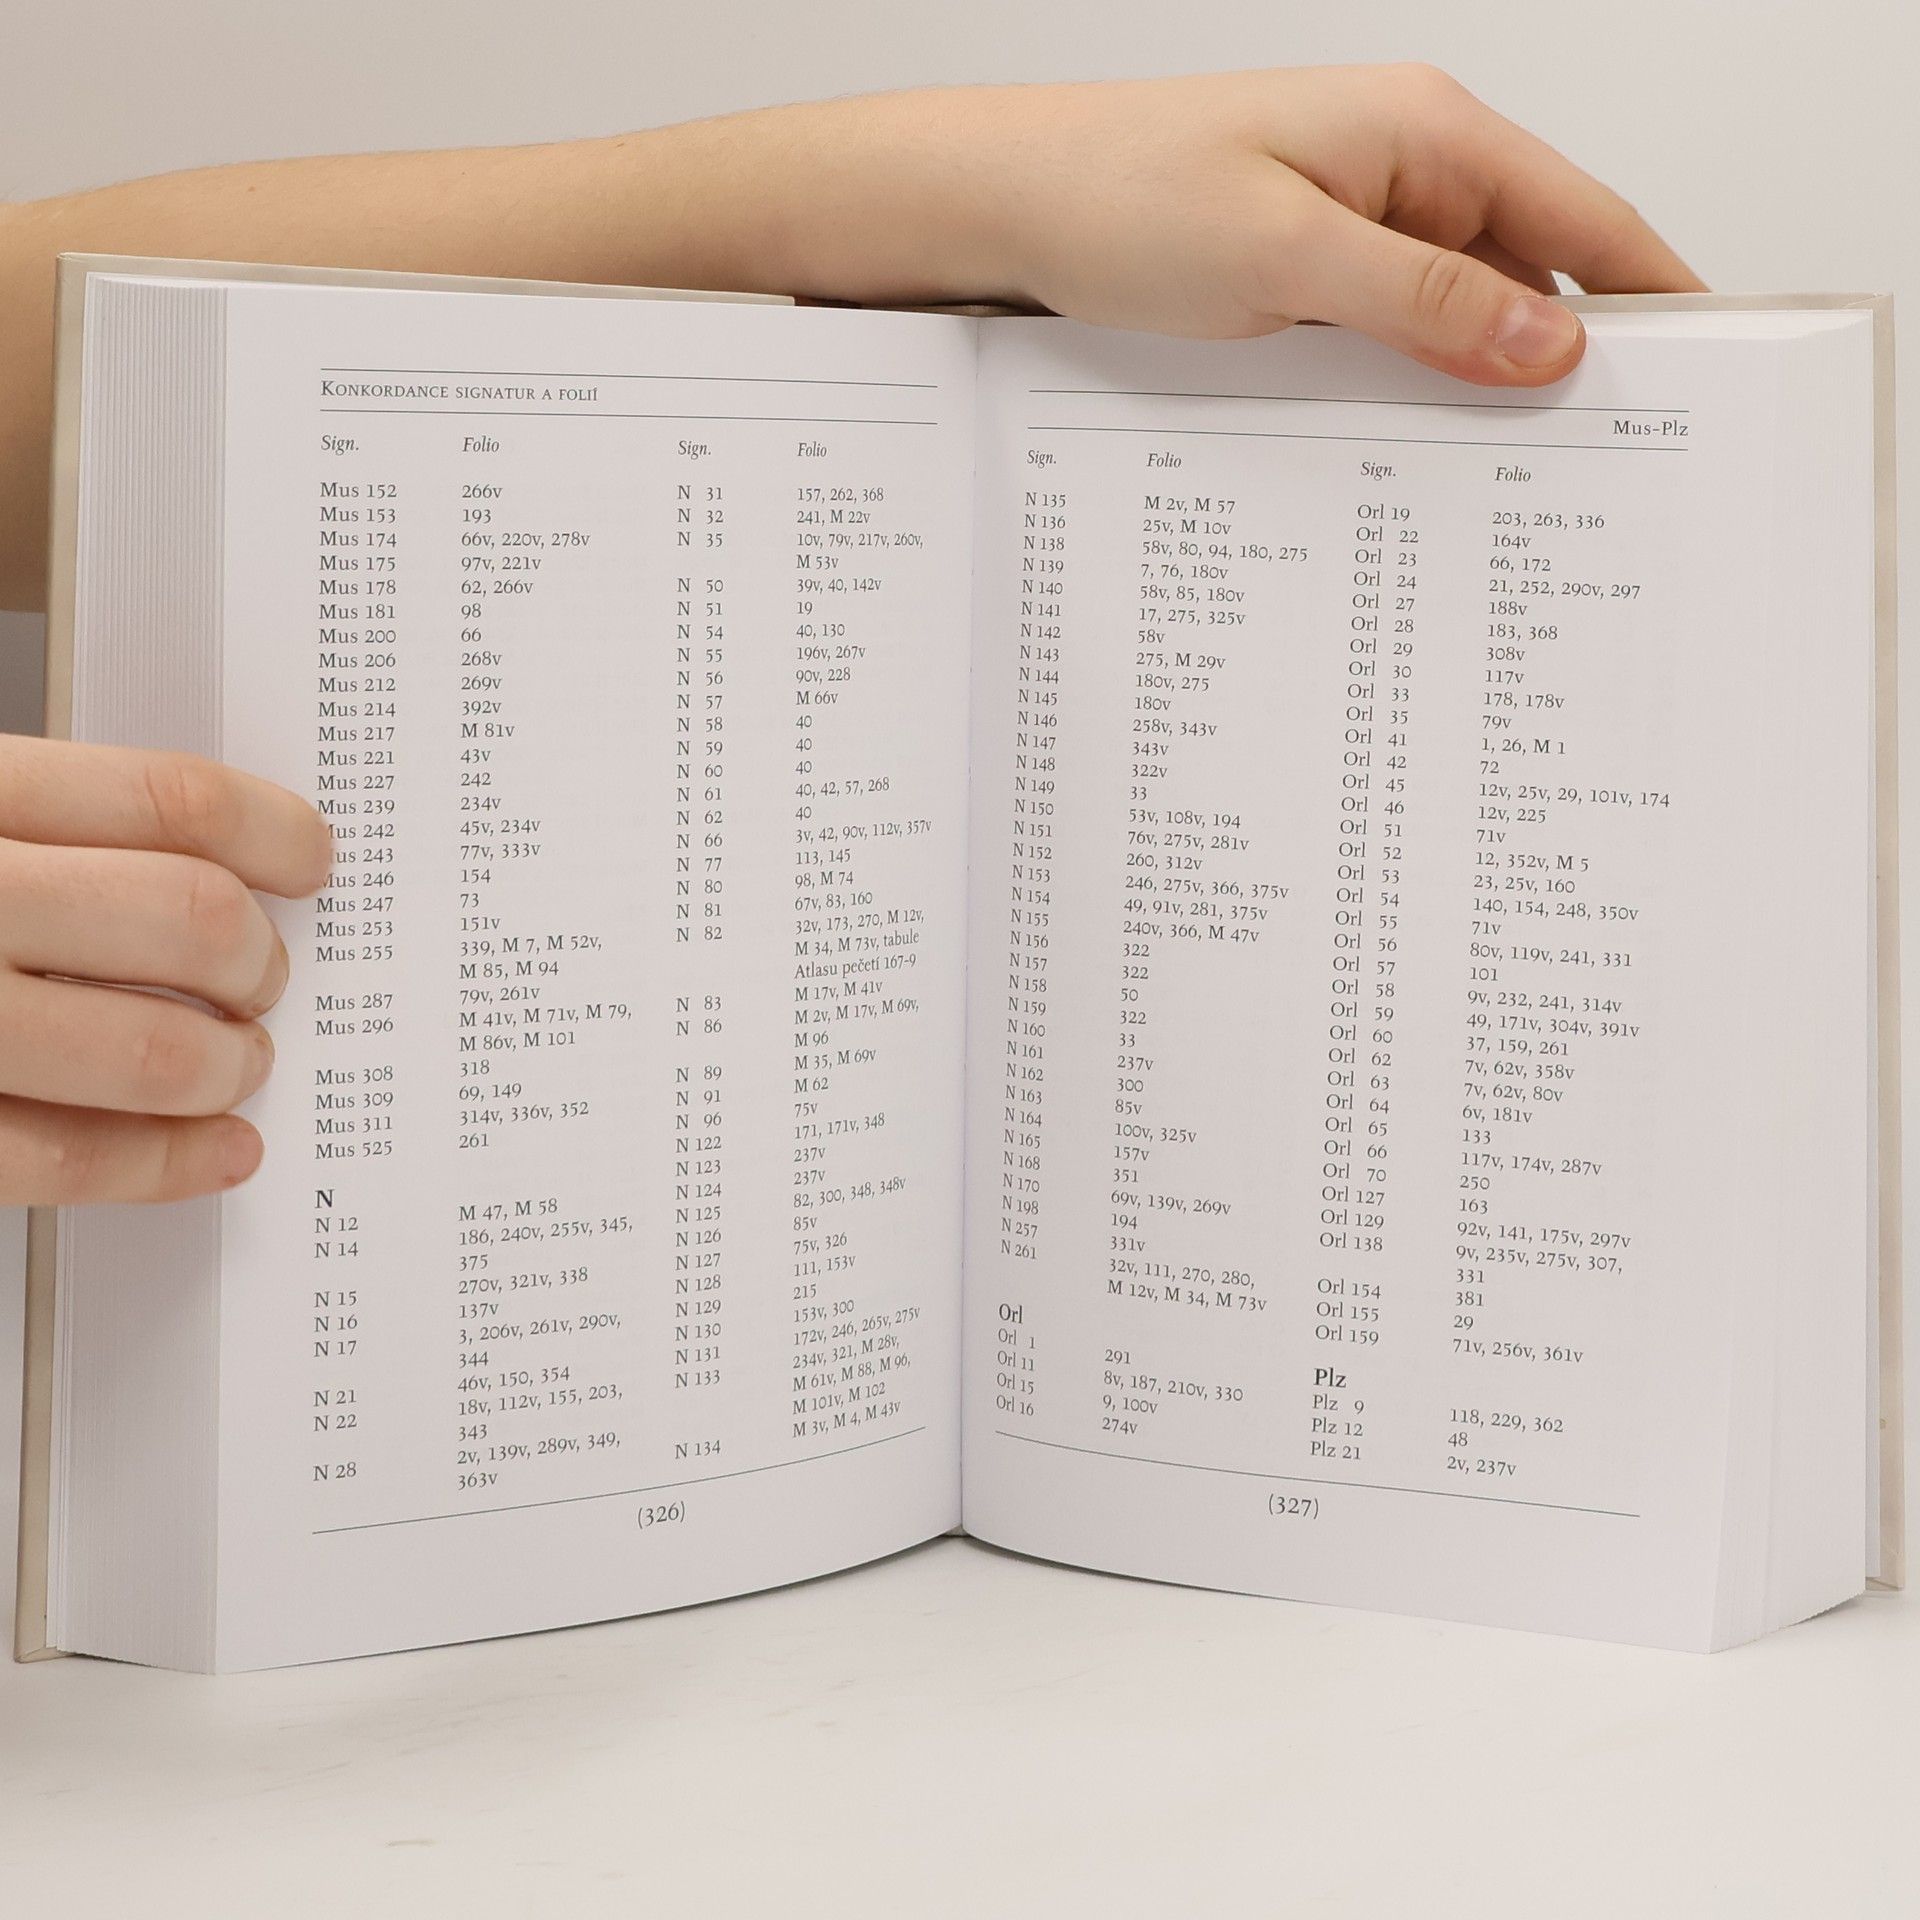 KONKORDANCE SIGNATUR A FOLIÍ
Sign. Folio
Mus 152 266v
Mus 153 193
Mus 174 66v, 220v, 278v
Mus 175 97v, 221v
Mus 178 62, 266v
Mus 181 98
Mus 200 66
Mus 206 268v
Mus 212 269v
Mus 214 392v
Mus 217 M 81v
Mus 221 43v
Mus 227 242
Mus 239 234v
Mus 242 45v, 234v
Mus 243 77v, 333v
Mus 246 154
Mus 247 73
Mus 253 151v
Mus 255 339, M 7, M 52v,
M 85, M 94
Mus 287 79v, 261v
Mus 296 M 41v, M 71v, M 79,
M 86v, M 101
Mus 308 318
Mus 309 69, 149
Mus 311 314v, 336v, 352
Mus 525 261
N
N 12 M 47, M 58
N 14 186, 240v, 255v, 345,
375
N 15 270v, 321v, 338
N 16 137v
N 17 3, 206v, 261v, 290v,
344
N 21 46v, 150, 354
N 22 18v, 112v, 155, 203,
343
N 28 2v, 139v, 289v, 349,
363v
Sign. Folio
N 31 157, 262, 368
N 32 241, M 22v
N 35 10v, 79v, 217v, 260v,
M 53v
N 50 39v, 40, 142v
N 51 19
N 54 40, 130
N 55 196v, 267v
N 56 90v, 228
N 57 M 66v
N 58 40
N 59 40
N 60 40
N 61 40, 42, 57, 268
N 62 40
N 66 3v, 42, 90v, 112v, 357v
N 77 113, 145
N 80 98, M 74
N 81 67v, 83, 160
N 82 32v, 173, 270, M 12v,
M 34, M 73v, tabule
Atlasu pečetí 167-9
N 83 M 17v, M 41v
N 86 M 2v, M 17v, M 69v,
M 96
N 89 M 35, M 69v
N 91 M 62
N 96 75v
N 122 171, 171v, 348
N 123 237v
N 124 237v
N 125 82, 300, 348, 348v
N 126 85v
N 127 75v, 326
N 128 111, 153v
N 129 215
N 130 153v, 300
N 131 172v, 246, 265v, 275v
N 133 234v, 321, M 28v,
M 61v, M 88, M 96,
M 101v, M 102
N 134 M 3v, M 4, M 43v
(326)
Mus-Plz
Sign. Folio
N 135 M 2v, M 57
N 136 25v, M 10v
N 138 58v, 80, 94, 180, 275
N 139 7, 76, 180v
N 140 58v, 85, 180v
N 141 17, 275, 325v
N 142 58v
N 143 275, M 29v
N 144 180v, 275
N 145 180v
N 146 258v, 343v
N 147 343v
N 148 322v
N 149 33
N 150 53v, 108v, 194
N 151 76v, 275v, 281v
N 152 260, 312v
N 153 246, 275v, 366, 375v
N 154 49, 91v, 281, 375v
N 155 240v, 366, M 47v
N 156 322
N 157 322
N 158 50
N 159 322
N 160 33
N 161 237v
N 162 300
N 163 85v
N 164 100v, 325v
N 165 157v
N 168 351
N 170 69v, 139v, 269v
N 198 194
N 257 331v
N 261 32v, 111, 270, 280,
M 12v, M 34, M 73v
Orl
Orl 1 291
Orl 11 8v, 187, 210v, 330
Orl 15 9, 100v
Orl 16 274v
Sign. Folio
Orl 19 203, 263, 336
Orl 22 164v
Orl 23 66, 172
Orl 24 21, 252, 290v, 297
Orl 27 188v
Orl 28 183, 368
Orl 29 308v
Orl 30 117v
Orl 33 178, 178v
Orl 35 79v
Orl 41 1, 26, M 1
Orl 42 72
Orl 45 12v, 25v, 29, 101v, 174
Orl 46 12v, 225
Orl 51 71v
Orl 52 12, 352v, M 5
Orl 53 23, 25v, 160
Orl 54 140, 154, 248, 350v
Orl 55 71v
Orl 56 80v, 119v, 241, 331
Orl 57 101
Orl 58 9v, 232, 241, 314v
Orl 59 49, 171v, 304v, 391v
Orl 60 37, 159, 261
Orl 62 7v, 62v, 358v
Orl 63 7v, 62v, 80v
Orl 64 6v, 181v
Orl 65 133
Orl 66 117v, 174v, 287v
Orl 70 250
Orl 127 163
Orl 129 92v, 141, 175v, 297v
Orl 138 9v, 235v, 275v, 307,
331
Orl 154 381
Orl 155 29
Orl 159 71v, 256v, 361v
Plz
Plz 9 118, 229, 362
Plz 12 48
Plz 21 2v, 237v
(327)